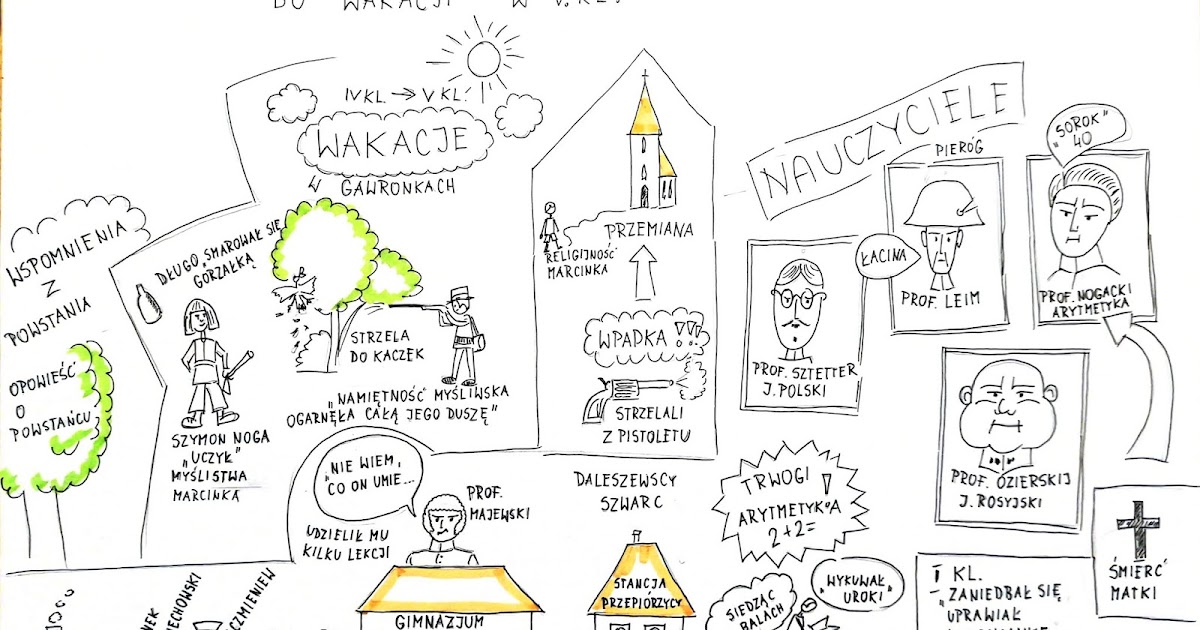 DO WAKACJI W V.KL.
IV KL. → V KL.
WAKACJE
W GAWRONKACH
WSPOMNIENIA
Z
POWSTANIA
OPOWIEŚĆ
O
POWSTAŃCU
DŁUGO „SMAROWAŁ SIĘ
GORZAŁKĄ
SZYMON NOGA
„UCZYŁ"
MYŚLISTWA
MARCINKA
STRZELA
DO KACZEK
„NAMIĘTNOŚĆ MYŚLIWSKA
OGARNĘŁA CAŁĄ JEGO DUSZĘ"
PRZEMIANA
RELIGIJNOŚĆ
MARCINKA
WPADKA !!!
STRZELALI
Z PISTOLETU
NAUCZYCIELE
PIERÓG
ŁACINA
PROF. LEIM
„SOROK"
40
PROF. NOGACKI
ARYTMETYKA
PROF. SZTETTER
J. POLSKI
PROF. OZIERSKIJ
J. ROSYJSKI
„NIE WIEM,
CO ON UMIE...
PROF.
MAJEWSKI
UDZIELIŁ MU
KILKU LEKCJI
GIMNAZJUM
DALESZEWSCY
SZWARC
STANCJA
PRZEPIÓRZYCY
TRWOGI !
ARYTMETYKA
2+2=
SIEDZĄC
BALACH
„WYKUWAŁ
UROKI"
I KL.
– „ZANIEDBAŁ SIĘ,
UPRAWIAŁ
ŚMIERĆ
MATKI